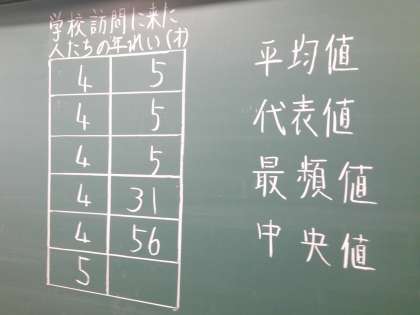 学校訪問に来た
人たちの年れい(才)
4 5
4 5
4 5
4 31
4 56
5
平均値
代表値
最頻値
中央値